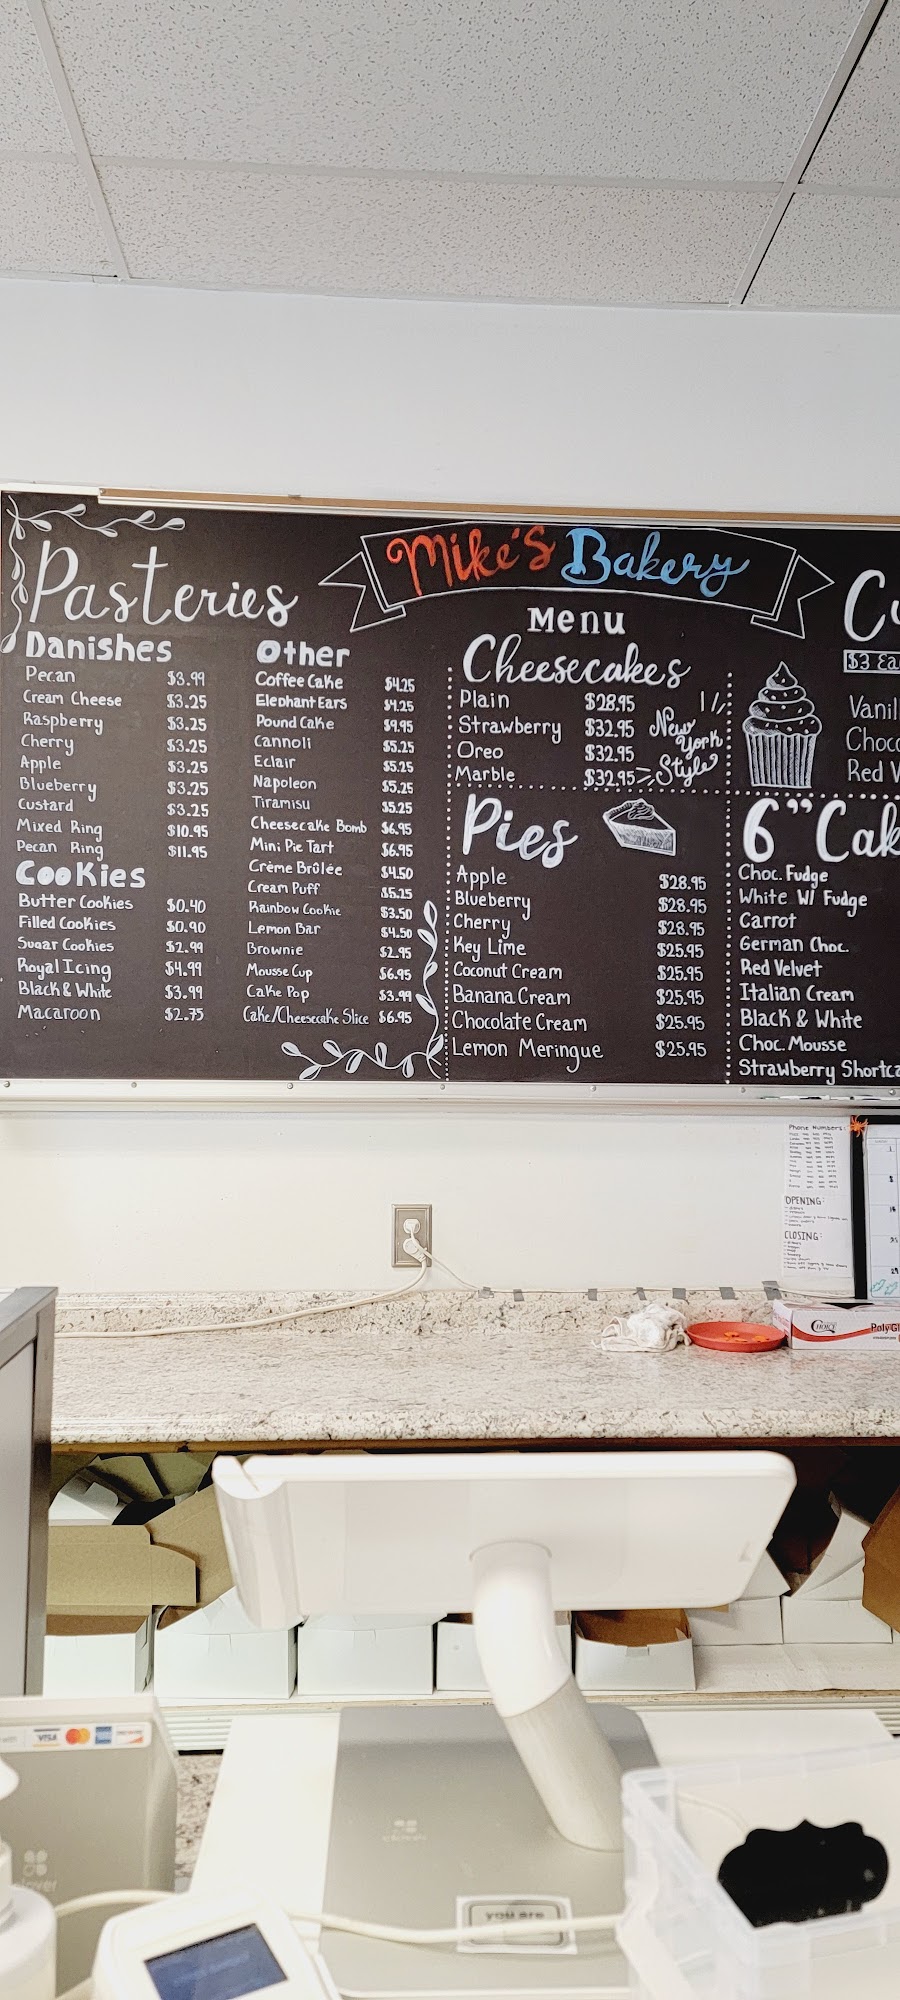 Mike's Bakery
Menu
Pasteries
Danishes
Pecan $3.99
Cream Cheese $3.25
Raspberry $3.25
Cherry $3.25
Apple $3.25
Blueberry $3.25
Custard $3.25
Mixed Ring $10.95
Pecan Ring $11.95
Cookies
Butter Cookies $0.40
Filled Cookies $0.90
Sugar Cookies $2.99
Royal Icing $4.99
Black & White $3.99
Macaroon $2.75
Other
Coffee Cake $4.25
Elephant Ears $4.25
Pound Cake $9.95
Cannoli $5.25
Eclair $5.25
Napoleon $5.25
Tiramisu $5.25
Cheesecake Bomb $6.95
Mini Pie Tart $6.95
Crème Brûlée $4.50
Cream Puff $5.25
Rainbow Cookie $3.50
Lemon Bar $4.50
Brownie $2.95
Mousse Cup $6.95
Cake Pop $3.99
Cake/Cheesecake Slice $6.95
Cheesecakes
Plain $28.95
Strawberry $32.95
Oreo $32.95
Marble $32.95
New
York
Style
Pies
Apple $28.95
Blueberry $28.95
Cherry $28.95
Key Lime $25.95
Coconut Cream $25.95
Banana Cream $25.95
Chocolate Cream $25.95
Lemon Meringue $25.95
Cu
$3 Ea
Vanil
Choco
Red V
6" Cak
Choc. Fudge
White W/ Fudge
Carrot
German Choc.
Red Velvet
Italian Cream
Black & White
Choc. Mousse
Strawberry Shortca
Phone Numbers:
OPENING:
CLOSING:
CHOICE
PolyGl
VISA
clover
you are